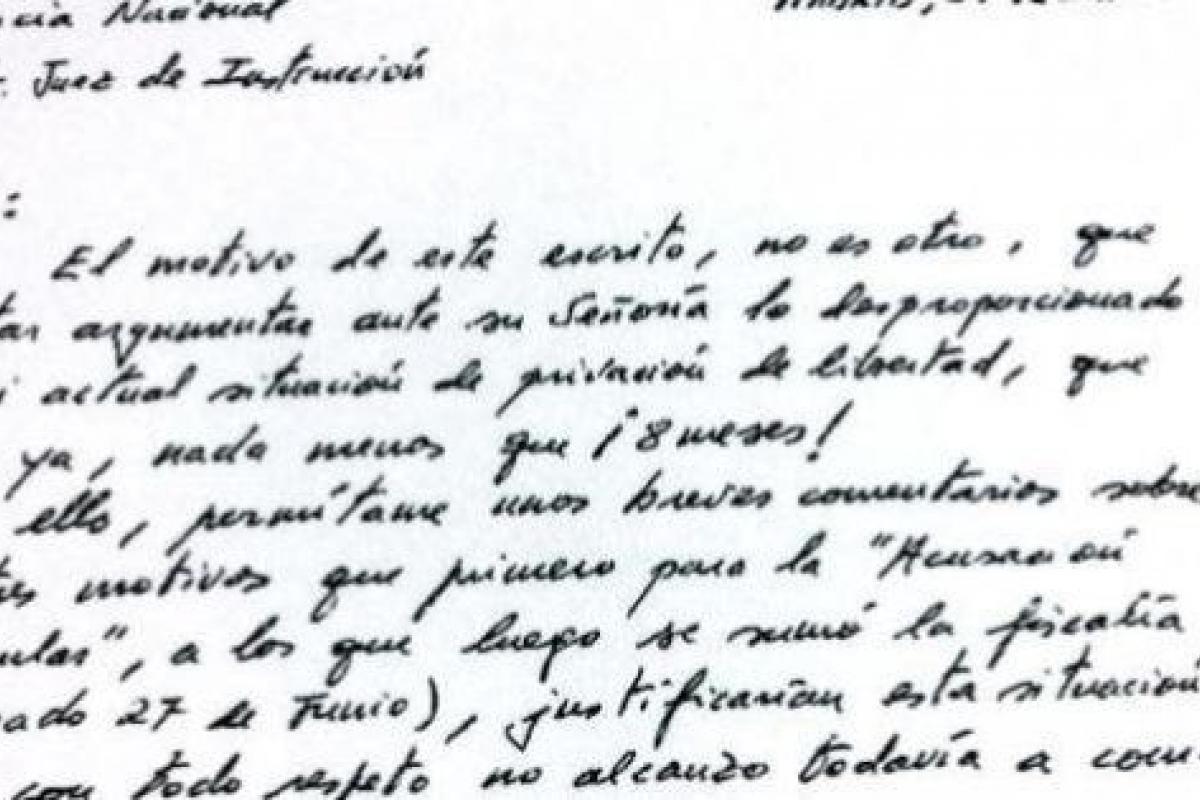 ncia Nacional
Juez de Instrucción
:
El motivo de este escrito, no es otro, que
tar argumentar ante su Señoría lo desproporcionado
i actual situación de privación de libertad, que
ya, nada menos que ¡8 meses!
ello, permítame unos breves comentarios sobre
tres motivos que primero para la "Acusación
ular", a los que luego se sumó la fiscalía
ado 27 de Junio), justificarían esta situación
con todo respeto no alcanzo todavía a com